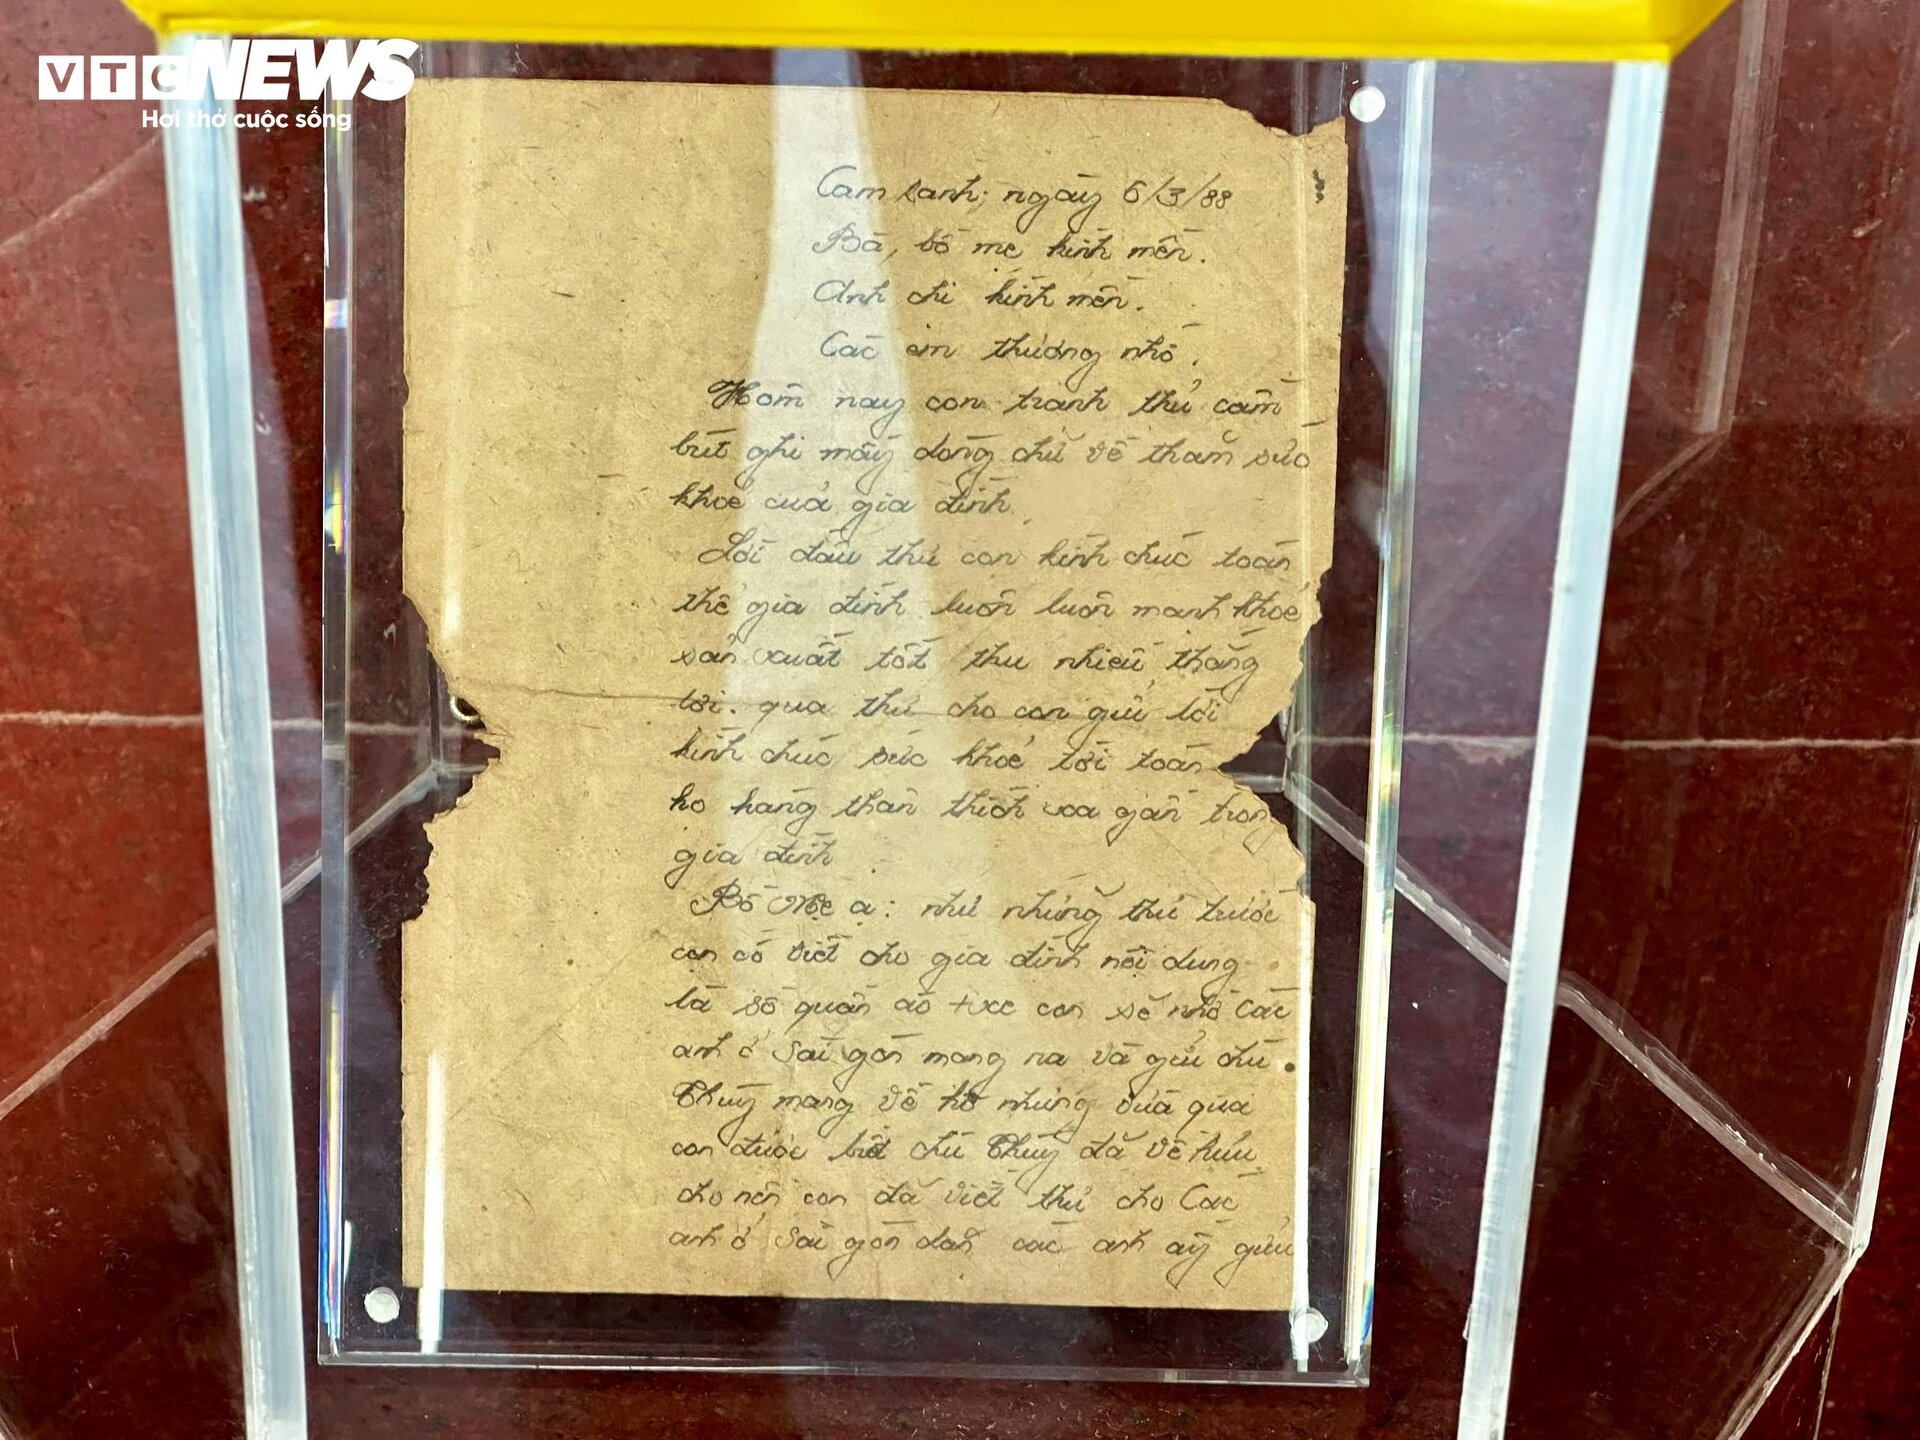 VTC NEWS
Hơi thở cuộc sống
Cam ranh; ngày 6/3/88
Bà, bố mẹ kính mến.
Anh chị kính mến.
Các em thương nhớ.
Hôm nay con tranh thủ cầm
bút ghi mấy dòng chữ về thăm sức
khoẻ của gia đình
Lời đầu thư con kính chúc toàn
thể gia đình luôn luôn mạnh khoẻ
sản xuất tốt thu nhiều thắng
lợi. qua thư cho con gửi lời
kính chúc sức khoẻ tới toàn
họ hàng thân thích xa gần trong
gia đình
Bố Mẹ ạ: như những thư trước
con có viết cho gia đình nội dung
là số quần áo + xe con sẽ nhờ Các
anh ở Sài gòn mang ra và gửi chú
Thuỷ mang về hộ nhưng vừa qua
con được biết chú Thuỷ đã về hưu
cho nên con đã viết thư cho Các
anh ở Sài gòn dặn các anh ấy gửi